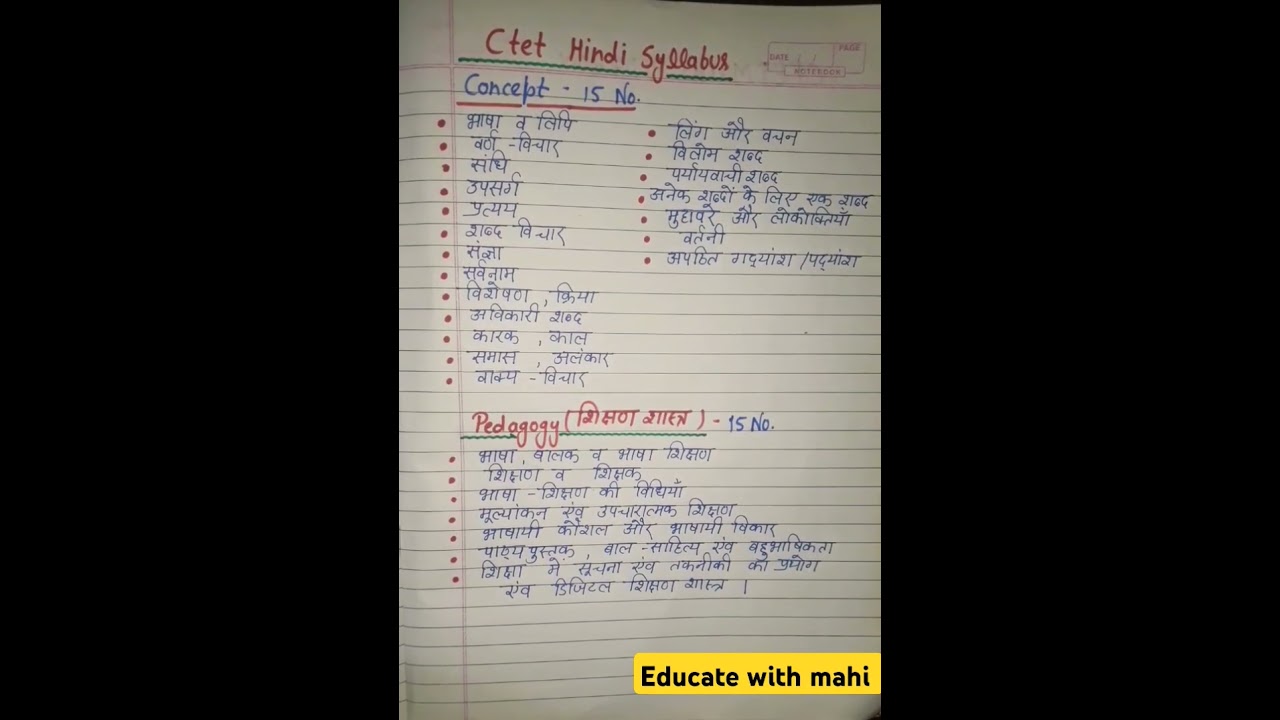 Ctet Hindi Syllabus
DATE
PAGE
NOTEBOOK
Concept - 15 No.
भाषा व लिपि
वर्ण -विचार
संधि
उपसर्ग
प्रत्यय
शब्द विचार
संज्ञा
सर्वनाम
विशेषण , क्रिया
अविकारी शब्द
कारक , काल
समास , अलंकार
वाक्य - विचार
लिंग और वचन
विलोम शब्द
पर्यायवाची शब्द
अनेक शब्दों के लिए एक शब्द
मुहावरे और लोकोक्तियाँ
वर्तनी
अपठित गद्यांश /पद्यांश
Pedagogy (शिक्षण शास्त्र) - 15 No.
भाषा , बालक व भाषा शिक्षण
शिक्षण व शिक्षक
भाषा - शिक्षण की विधियाँ
मूल्यांकन एंव उपचारात्मक शिक्षण
भाषायी कौशल और भाषायी विकार
पाठ्यपुस्तक , बाल -साहित्य एंव बहुभाषिकता
शिक्षा में सूचना एंव तकनीकी का प्रयोग
एंव डिजिटल शिक्षण शास्त्र ।
Educate with mahi